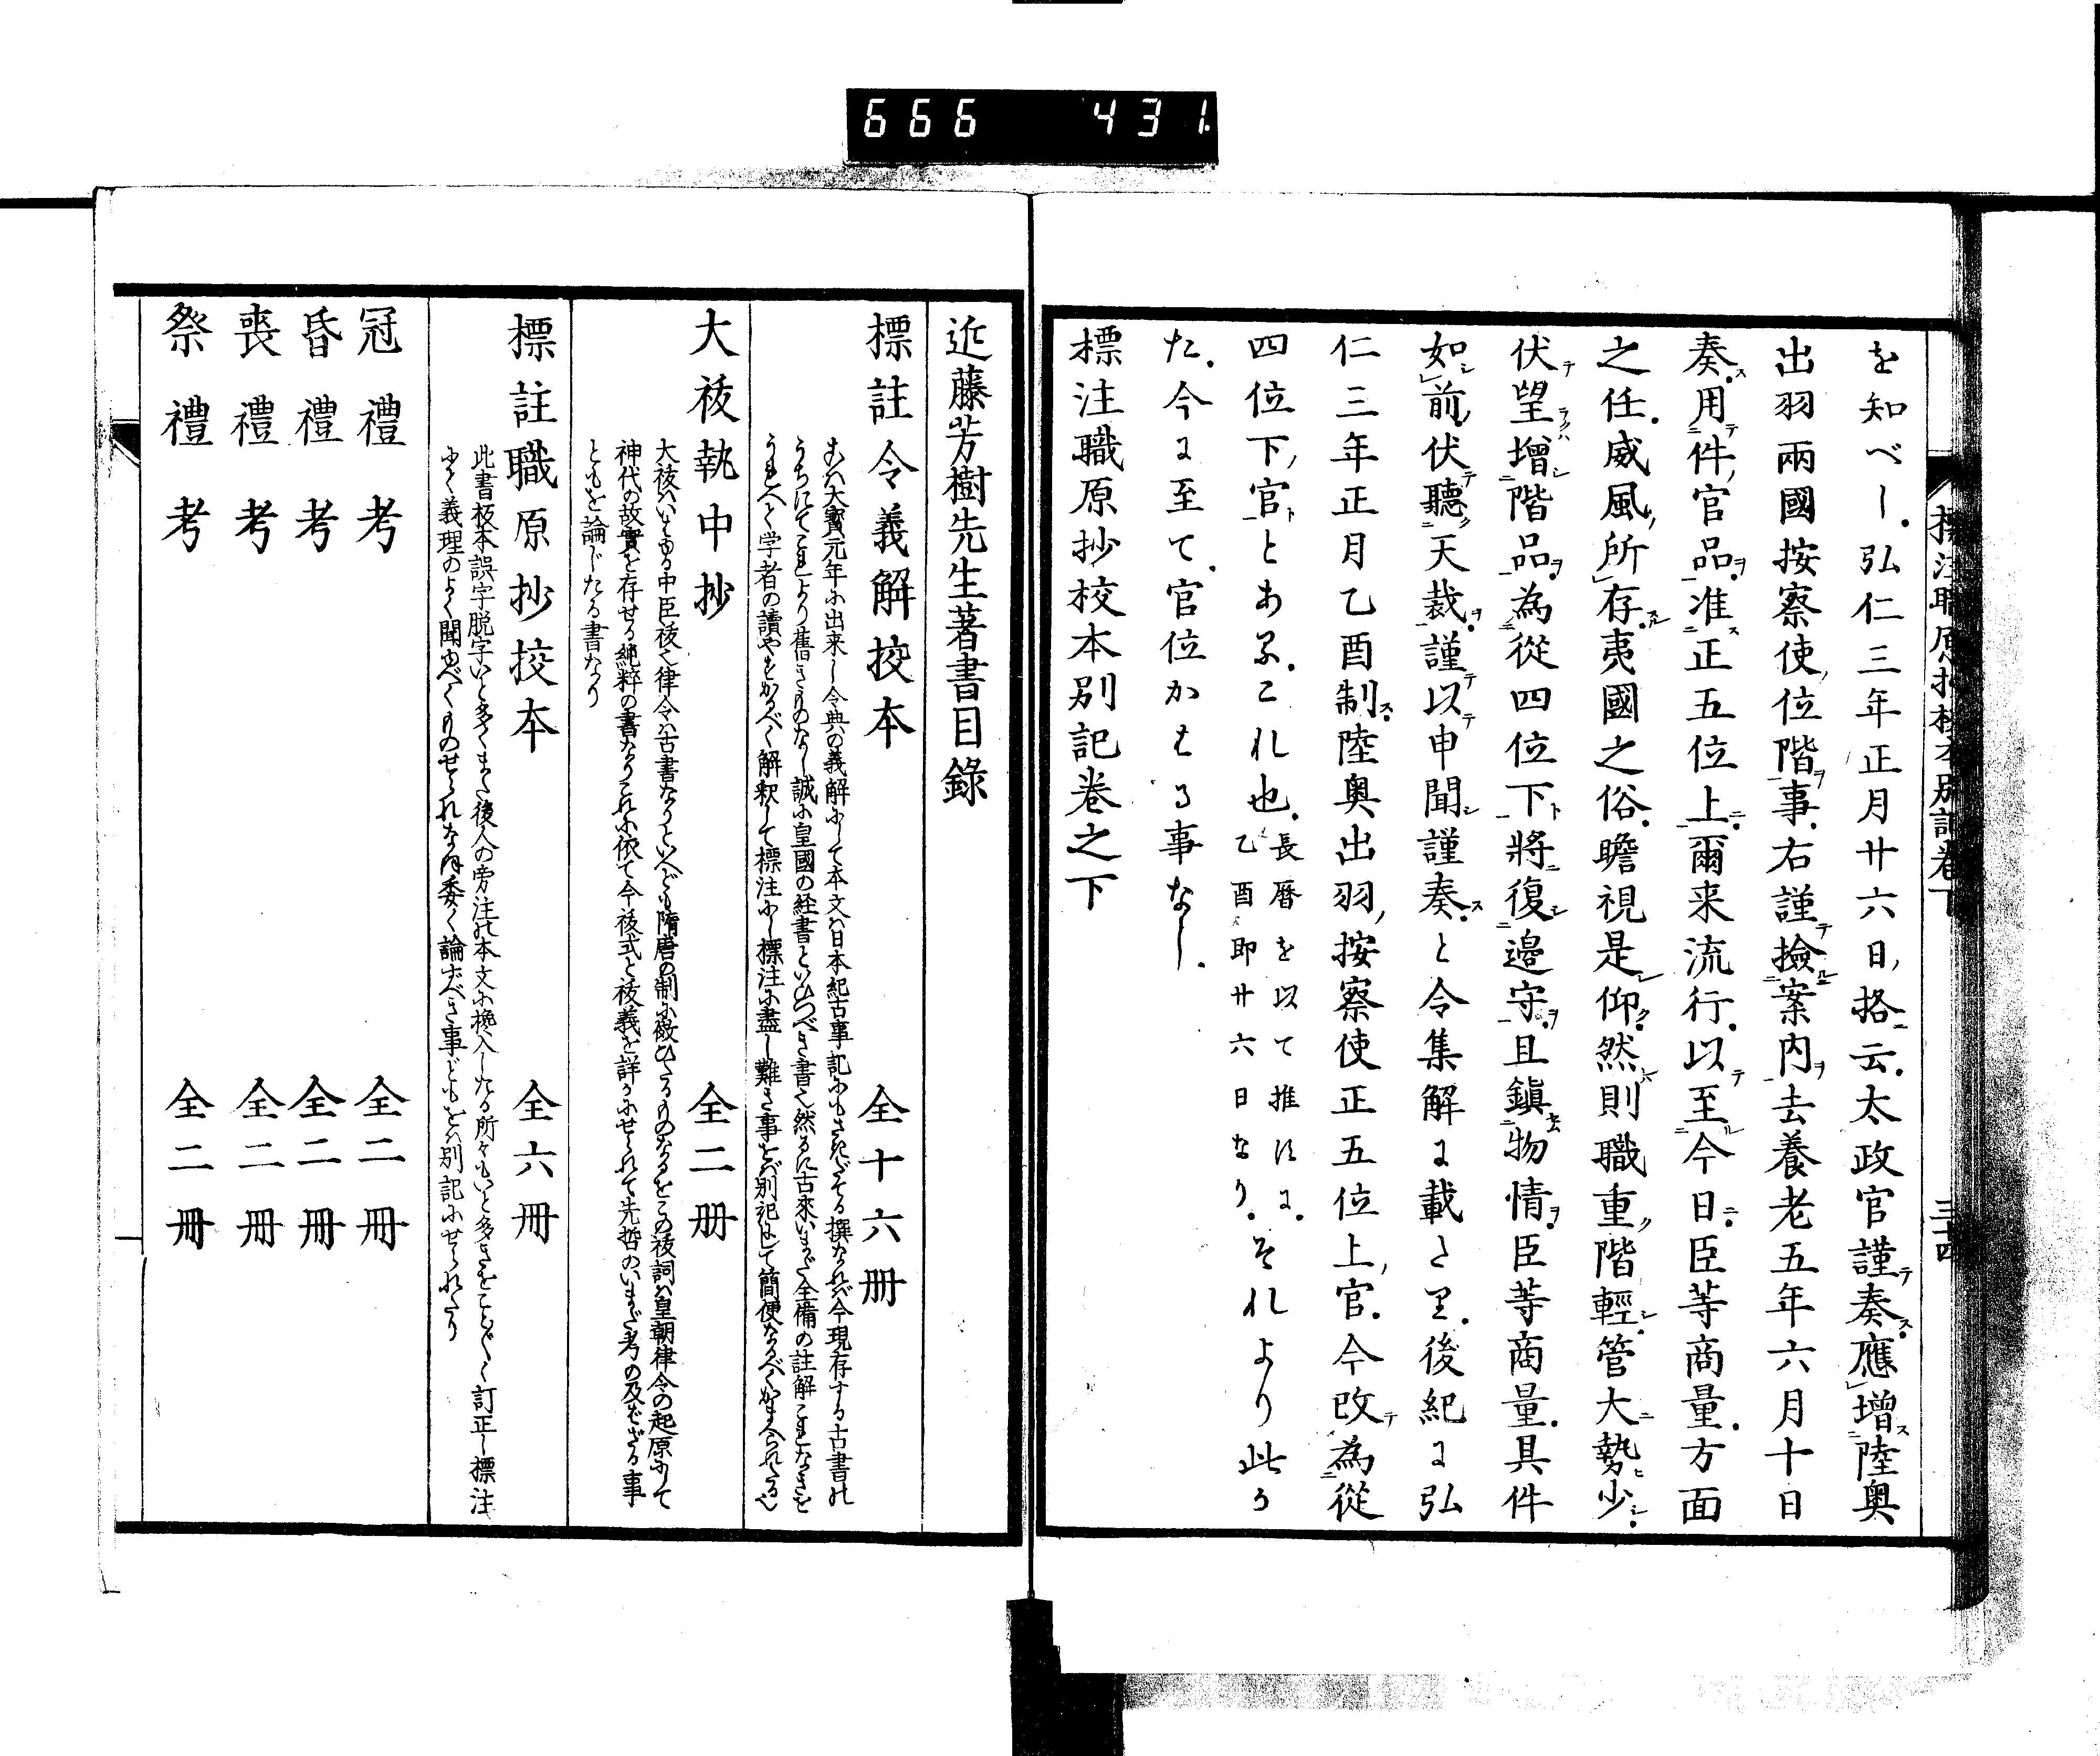 666 431
を知べし。弘仁三年正月廿六日、格云。太政官謹奏應増陸奥
出羽兩國按察使、位階事。右謹撿案内去養老五年六月十日
奏。用件、官品。准正五位上。爾来流行。以至今日。臣等商量。方面
之任。威風、所存。夷國之俗。瞻視是仰。然則職重、階輕。管大勢少。
伏望増階品。為從四位下將復邉守。且鎮物情。臣等商量。具件
如前。伏聽天裁。謹以申聞謹奏。と令集解に載たり。後紀に弘
仁三年正月乙酉制。陸奥出羽、按察使正五位上、官。今改為從
四位下、官とあるこれ也。
長暦を以て推すに。
乙酉ハ即廿六日なり。
それより此か
た。今に至て。官位かはる事なし。
標注職原抄校本別記巻之下
標注職原抄校本別記巻下
三十四
近藤芳樹先生著書目錄
標註令義解挍本 全十六冊
こハ大寳元年に出来し令典の義解にして本文ハ日本紀古事記にもさきだてる撰なれバ今現存する古書の
うちにてこれより舊きものなし誠に皇國の経書といひつべき書也然るに古來いまだ全備の註解これなきを
うれへて学者の讀やすかるべく解釈して標注にし標注に盡し難き事をバ別記にして簡便なるべくかまへられたる也
大祓執中抄 全二冊
大祓ハいはゆる中臣祓也律令ハ古書なりといへども隋唐の制に倣ひたるものなるをこの祓詞ハ皇朝律令の起原にして
神代の故實を存せる純粹の書なりこれに依て今祓式と祓義を詳かにせられて先哲のいまだ考の及ばざる事
ともを論じたる書なり
標註職原抄挍本 全六冊
此書板本誤字脱字いと多くまた後人の旁注の本文に攙入したる所々もいと多きをことごとく訂正し標注
して義理のよく聞ゆべくものせられなほ委く論ずべき事どもをハ別記にせられたり
冠禮考 全二冊
昏禮考 全二冊
喪禮考 全二冊
祭禮考 全二冊